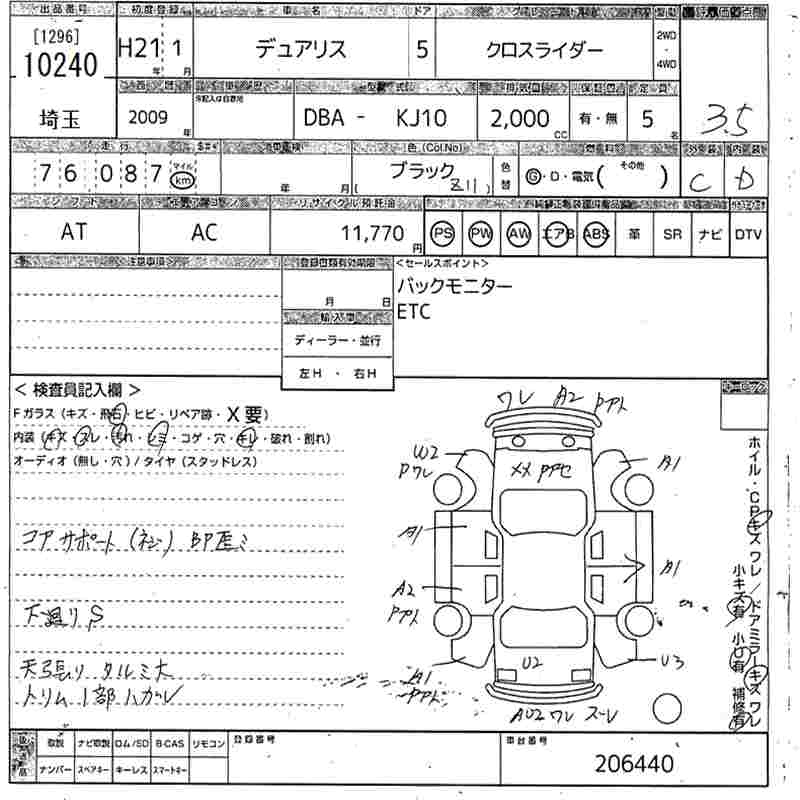 出品番号 初度登録 車名 ドア グレード 駆動 評価点
[1296]
10240 H21 1 デュアリス 5 クロスライダー 2WD・4WD
年 月
埼玉 西暦 車歴 型式 排気量 保証書 定員
2009 年 DBA - KJ10 2,000 CC 有・無 5 名 3.5
走行 車検 色 (Col.No) 燃料 外装 内装
76087 マイル km 年 月 ブラック 色替 G・D・電気 ( その他 ) C D
シフト エアコン リサイクル預託金
AT AC 11,770 円 PS PW AW エアB ABS 革 SR ナビ DTV
注意事項 登録書類有効期限 <セールスポイント>
月 日 バックモニター
ETC
輸入車
ディーラー・並行
左H ・ 右H
< 検査員記入欄 >
Fガラス (キズ・飛石・ヒビ・リペア跡・X要)
内装 (キズ・スレ・汚れ・シミ・コゲ・穴・キレ・破れ・割れ)
オーディオ (無し・穴) / タイヤ (スタッドレス)
ワレ A2 PPト
U2 Pワレ
A1
メメ PPセ
コアサポート (ネジ) BP歪ミ
A1 A1
A2 PPト
下廻りS
天張り タルミ大
トリム1部ハガレ
A1 PPト
U2 U3
AU2 ワレ スレ
ホイル・CPキズワレ/ドアミラーキズワレ
小キズ有 小U有 補修有
取説 ナビ取説 ロム/SD B-CAS リモコン 登録番号 車台番号
ナンバー スペアキー キーレス スマートキー 206440